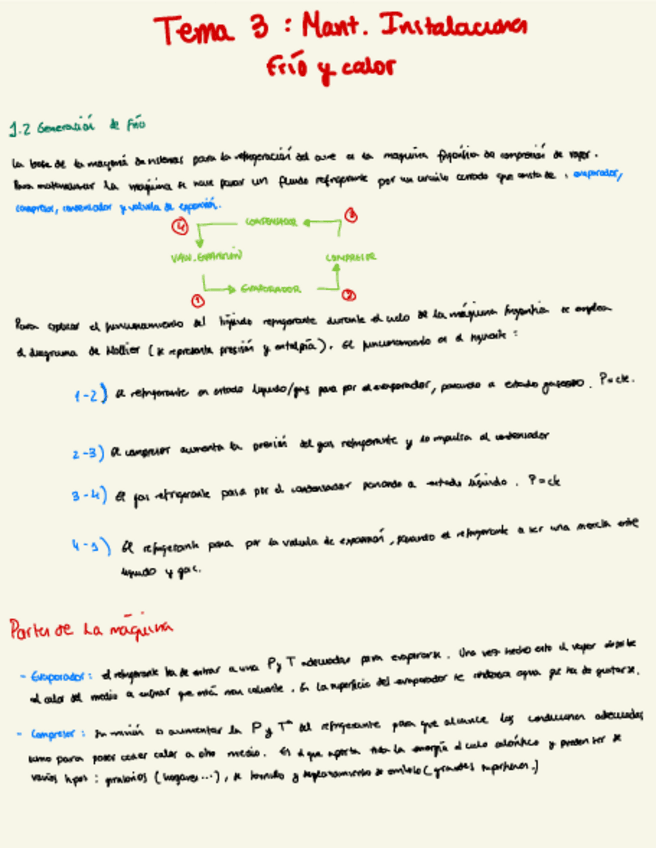 Tema 3 : Mant. Instalaciones
Frío y calor
1.2 Generación de frío
La base de la mayoría de sistemas para la refrigeración del aire es la maquina frigorífica de compresión de vapor.
Para materializar la máquina se hace pasar un fluido refrigerante por un circuito cerrado que consta de : evaporador,
compresor, condensador y valvula de expansión.
4 CONDENSADOR 3
VALV. EXPANSIÓN COMPRESOR
1 EVAPORADOR 2
Para explicar el funcionamiento del líquido refrigerante durante el ciclo de la máquina frigorífica se emplea
el diagrama de Mollier (se representa presión y entalpía). El funcionamiento es el siguiente :
1-2) El refrigerante en estado líquido/gas pasa por el evaporador, pasando a estado gaseoso. P=cte.
2-3) El compresor aumenta la presión del gas refrigerante y lo impulsa al condensador
3-4) El gas refrigerante pasa por el condensador pasando a estado líquido. P=cte
4-1) El refrigerante pasa por la valvula de expansión, pasando el refrigerante a ser una mezcla entre
líquido y gas.
Partes de La máquina
- Evaporador : el refrigerante ha de entrar a una P y T adecuadas para evaporarse. Una vez hecho esto el vapor absorbe
el calor del medio a enfriar que está mas caliente. En la superficie del evaporador se condensa agua que ha de
- Compresor : Su misión es aumentar la P y Tª del refrigerante para que alcance las condiciones adecuadas
como para poder ceder calor a otro medio. Es el que aporta toda la energía al ciclo y pueden ser de
varios tipos : (hogares...), de tornillo y desplazamiento de embolo (grandes superficies.)